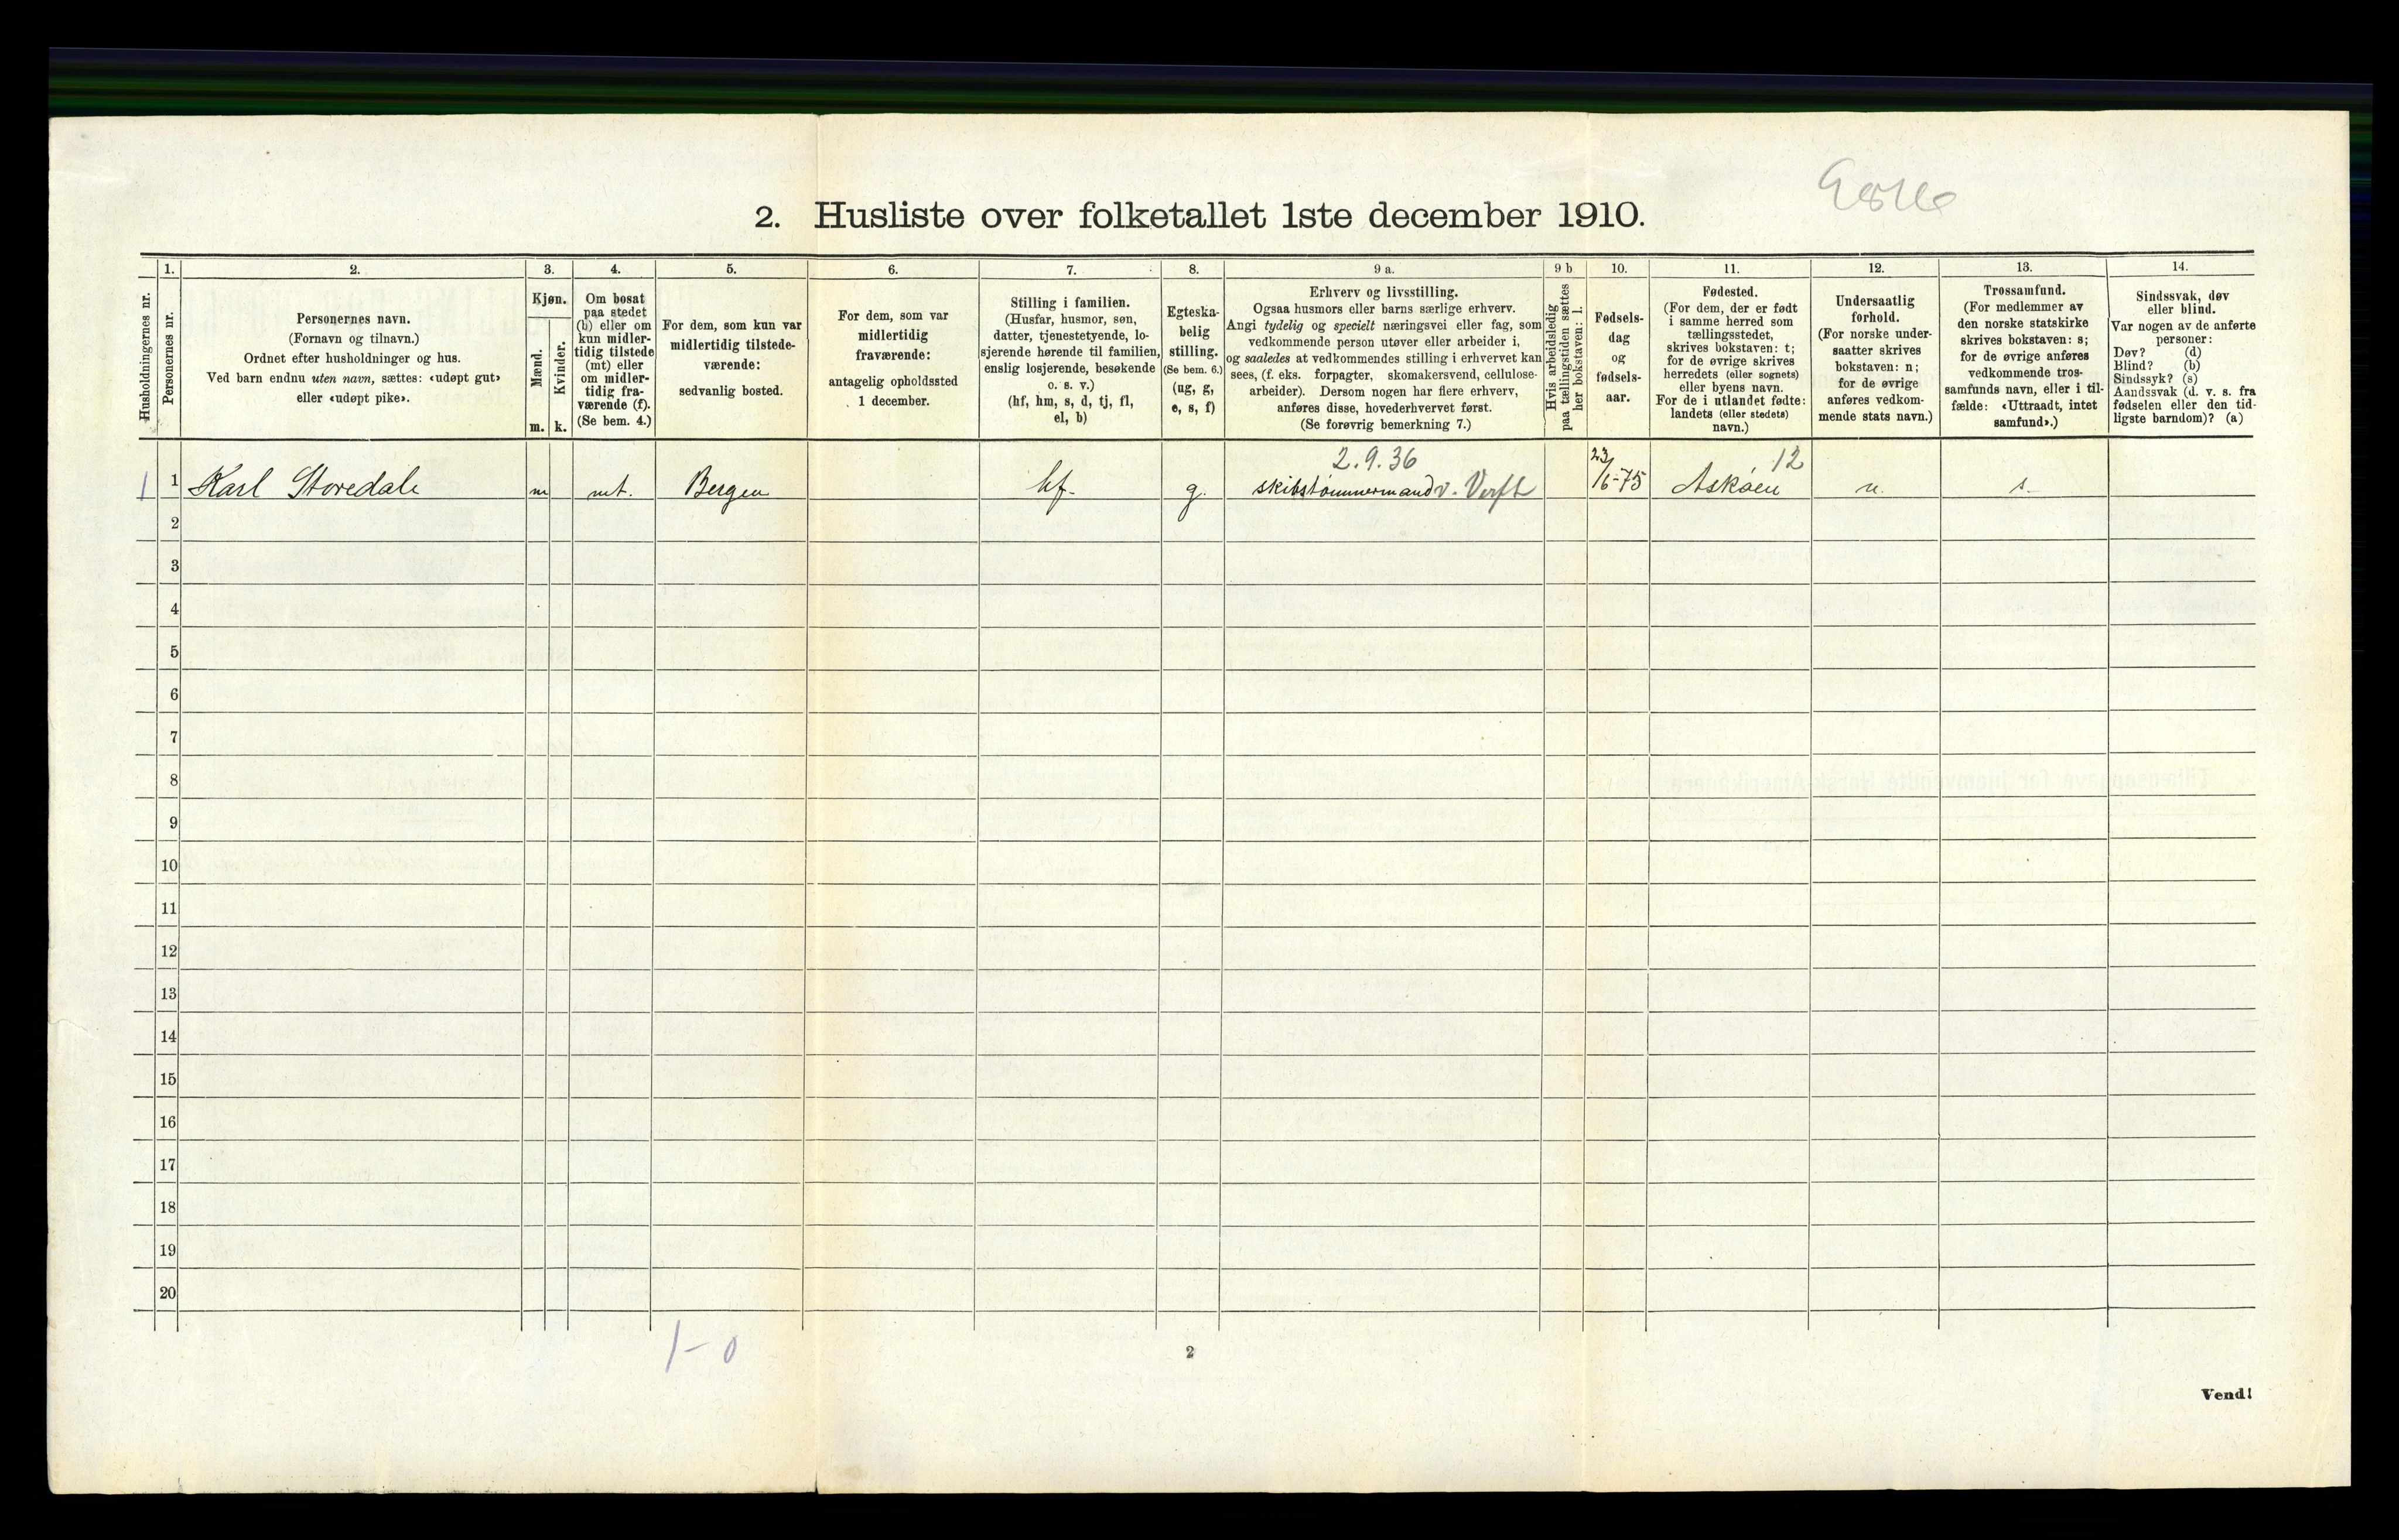 2. Husliste over folketallet 1ste december 1910.
Husholdningernes nr.
1.
Personernes nr.
2.
Personernes navn.
(Fornavn og tilnavn.)
Ordnet efter husholdninger og hus.
Ved barn endnu uten navn, sættes: «udøpt gut»
eller «udøpt pike».
3.
Kjøn.
Mænd.
m.
Kvinder.
k.
4.
Om bosat
paa stedet
(b) eller om
kun midler-
tidig tilstede
(mt) eller
om midler-
tidig fra-
værende (f).
(Se bem. 4.)
5.
For dem, som kun var
midlertidig tilstede-
værende:
sedvanlig bosted.
6.
For dem, som var
midlertidig
fraværende:
antagelig opholdssted
1 december.
7.
Stilling i familien.
(Husfar, husmor, søn,
datter, tjenestetyende, lo-
sjerende hørende til familien,
enslig losjerende, besøkende
o. s. v.)
(hf, hm, s, d, tj, fl,
el, b)
8.
Egteska-
belig
stilling.
(Se bem. 6.)
(ug, g,
e, s, f)
9 a.
Erhverv og livsstilling.
Ogsaa husmors eller barns særlige erhverv.
Angi tydelig og specielt næringsvei eller fag, som
vedkommende person utøver eller arbeider i,
og saaledes at vedkommendes stilling i erhvervet kan
sees, (f. eks. forpagter, skomakersvend, cellulose-
arbeider). Dersom nogen har flere erhverv,
anføres disse, hovederhvervet først.
(Se forøvrig bemerkning 7.)
9 b
Hvis arbeidsledig
paa tællingstiden sættes
her bokstaven: l.
10.
Fødsels-
dag
og
fødsels-
aar.
11.
Fødested.
(For dem, der er født
i samme herred som
tællingsstedet,
skrives bokstaven: t;
for de øvrige skrives
herredets (eller sognets)
eller byens navn.
For de i utlandet fødte:
landets (eller stedets)
navn.)
12.
Undersaatlig
forhold.
(For norske under-
saatter skrives
bokstaven: n;
for de øvrige
anføres vedkom-
mende stats navn.)
13.
Trossamfund.
(For medlemmer av
den norske statskirke
skrives bokstaven: s;
for de øvrige anføres
vedkommende tros-
samfunds navn, eller i til-
fælde: «Uttraadt, intet
samfund».)
14.
Sindssvak, døv
eller blind.
Var nogen av de anførte
personer:
Døv? (d)
Blind? (b)
Sindssyk? (s)
Aandssvak (d. v. s. fra
fødselen eller den tid-
ligste barndom)? (a)
2.9.36
12
1 1 Karl Storedale m mt. Bergen hf. g. skibstømmermand v. Verft 23/6-75 Askøen n. s.
2
3
4
5
6
7
8
9
10
11
12
13
14
15
16
17
18
19
20
1-0
2
Vend!